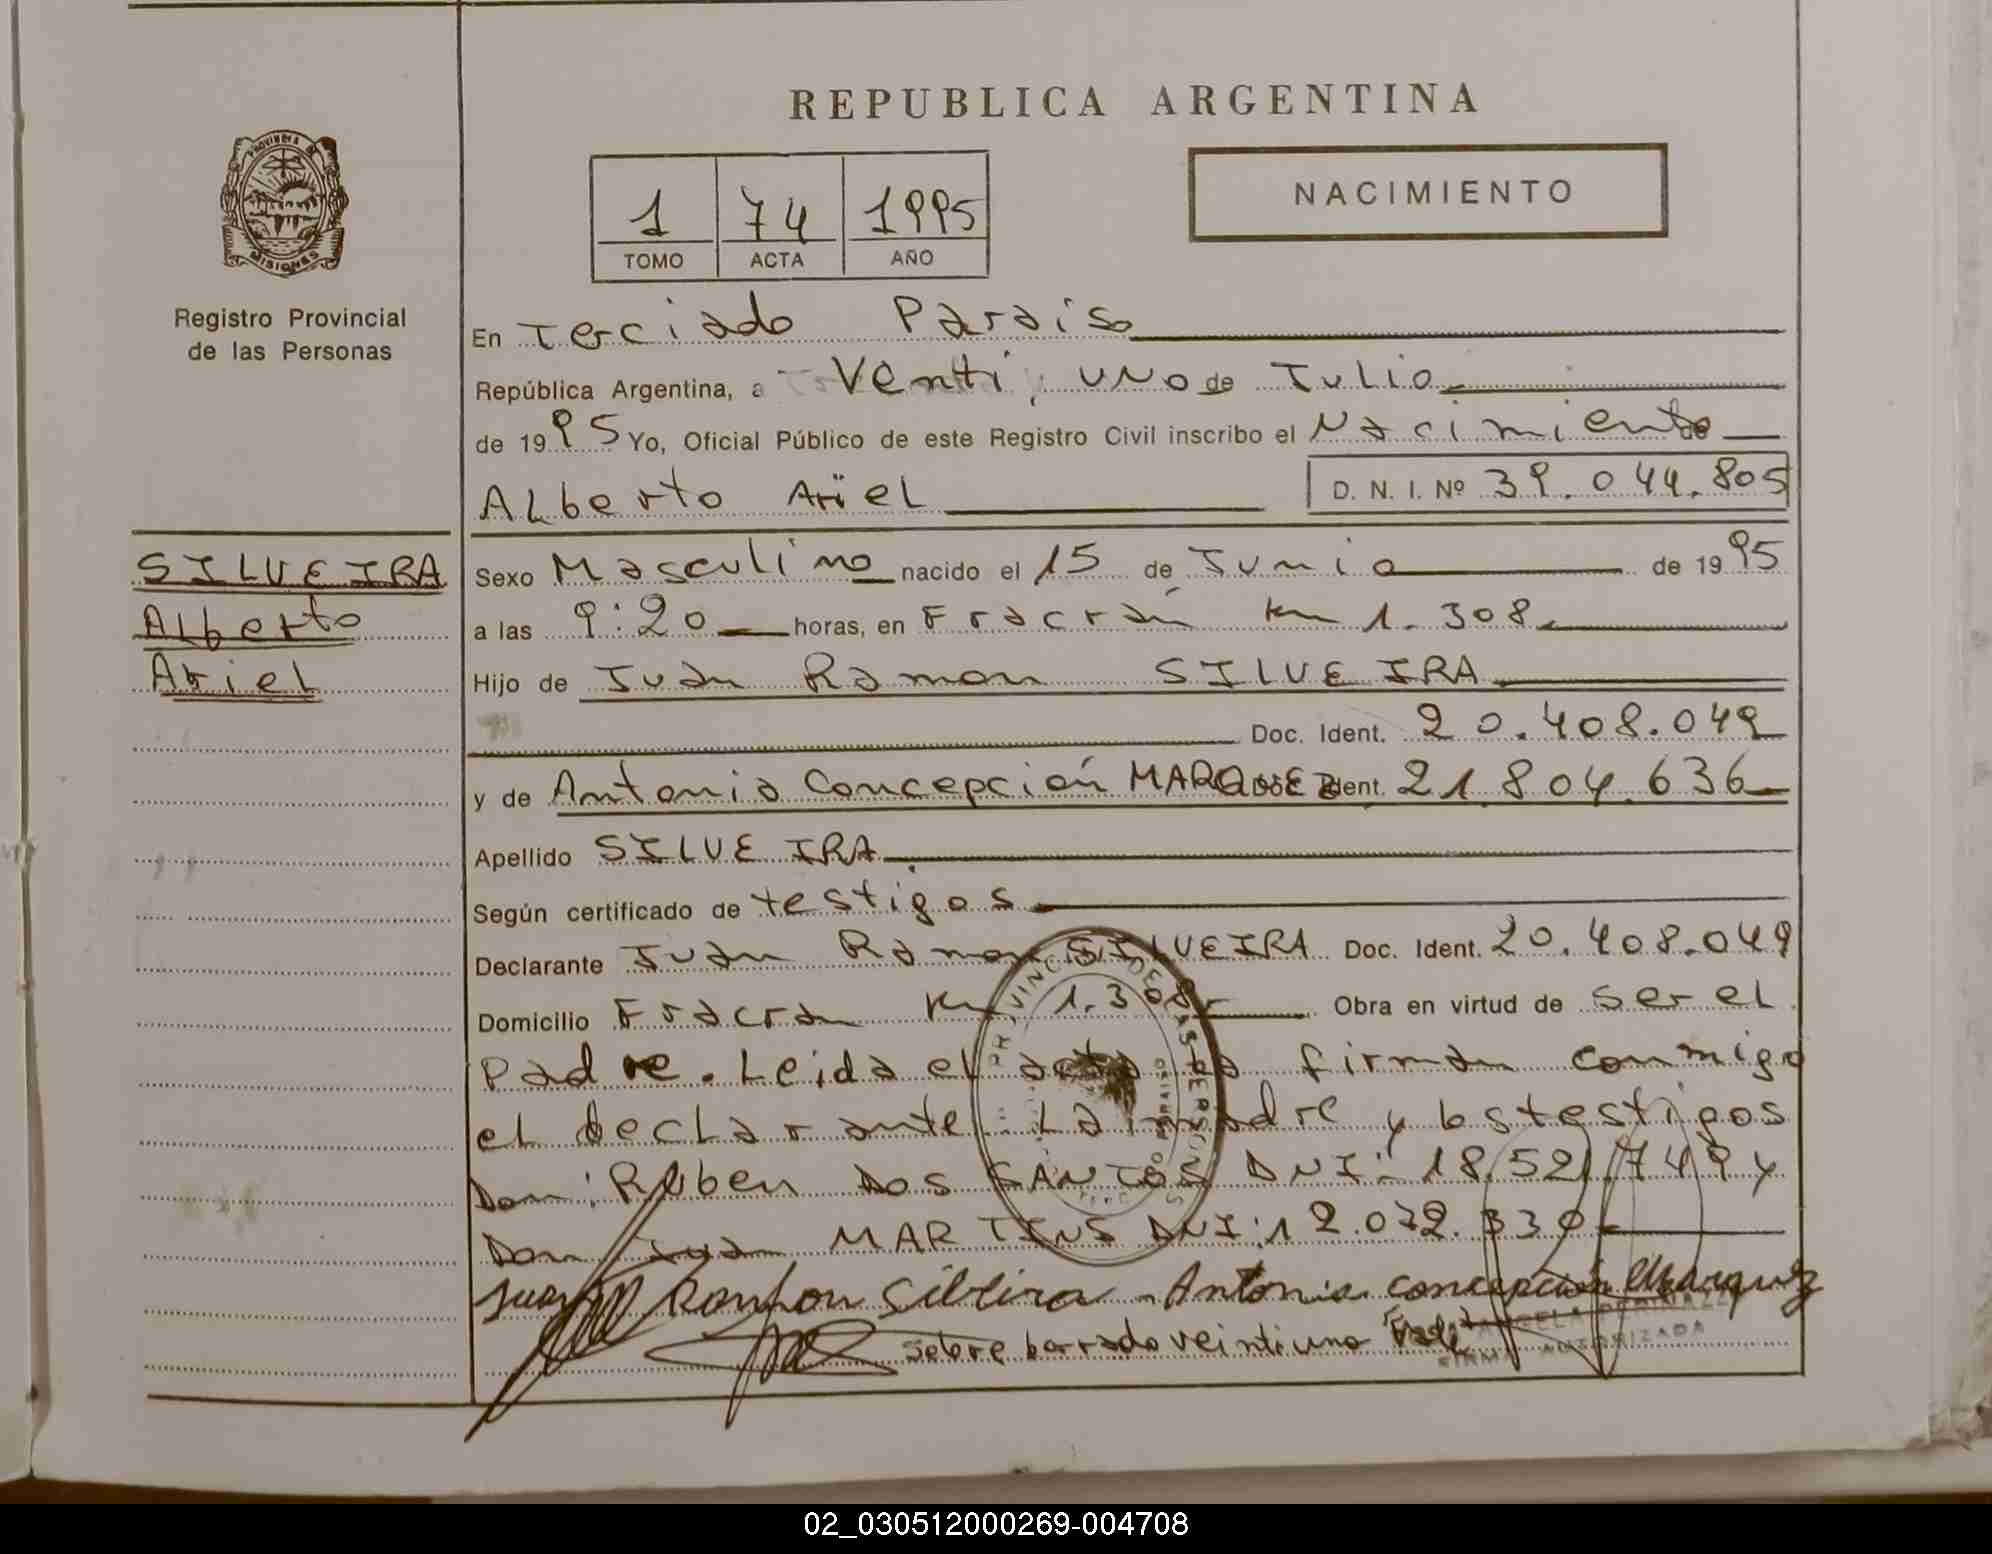 REPUBLICA ARGENTINA
PROVINCIA DE
MISIONES
Registro Provincial
de las Personas
1 74 1995
TOMO ACTA AÑO
NACIMIENTO
En Terciado Paraiso
República Argentina, a Venti uno de Julio
de 1995 Yo, Oficial Público de este Registro Civil inscribo el Nacimiento de
Alberto Ariel D. N. I. Nº 39.044.805
SILVEIRA
Alberto
Ariel
Sexo Masculino nacido el 15 de Junio de 1995
a las 9:20 horas, en Fracrán Km 1.308
Hijo de Juan Ramon SILVEIRA
Doc. Ident. 20.408.049
y de Antonia Concepción MARQUEZ Doc. Ident. 21.804.636
Apellido SILVEIRA
Según certificado de testigos
Declarante Juan Ramon SILVEIRA Doc. Ident. 20.408.049
Domicilio Fracran Km 1.308 Obra en virtud de ser el
Padre. Leida el acta la firman conmigo
el declarante La madre y los testigos
Don: Ruben DOS SANTOS DNI: 18.521.749 y
Don Juan MARTINS DNI: 12.072.330
Juan Ramon Silveira - Antonia Concepción Marquez
sobre borrado veintiuno Vale
FIRMA AUTORIZADA
02_030512000269-004708